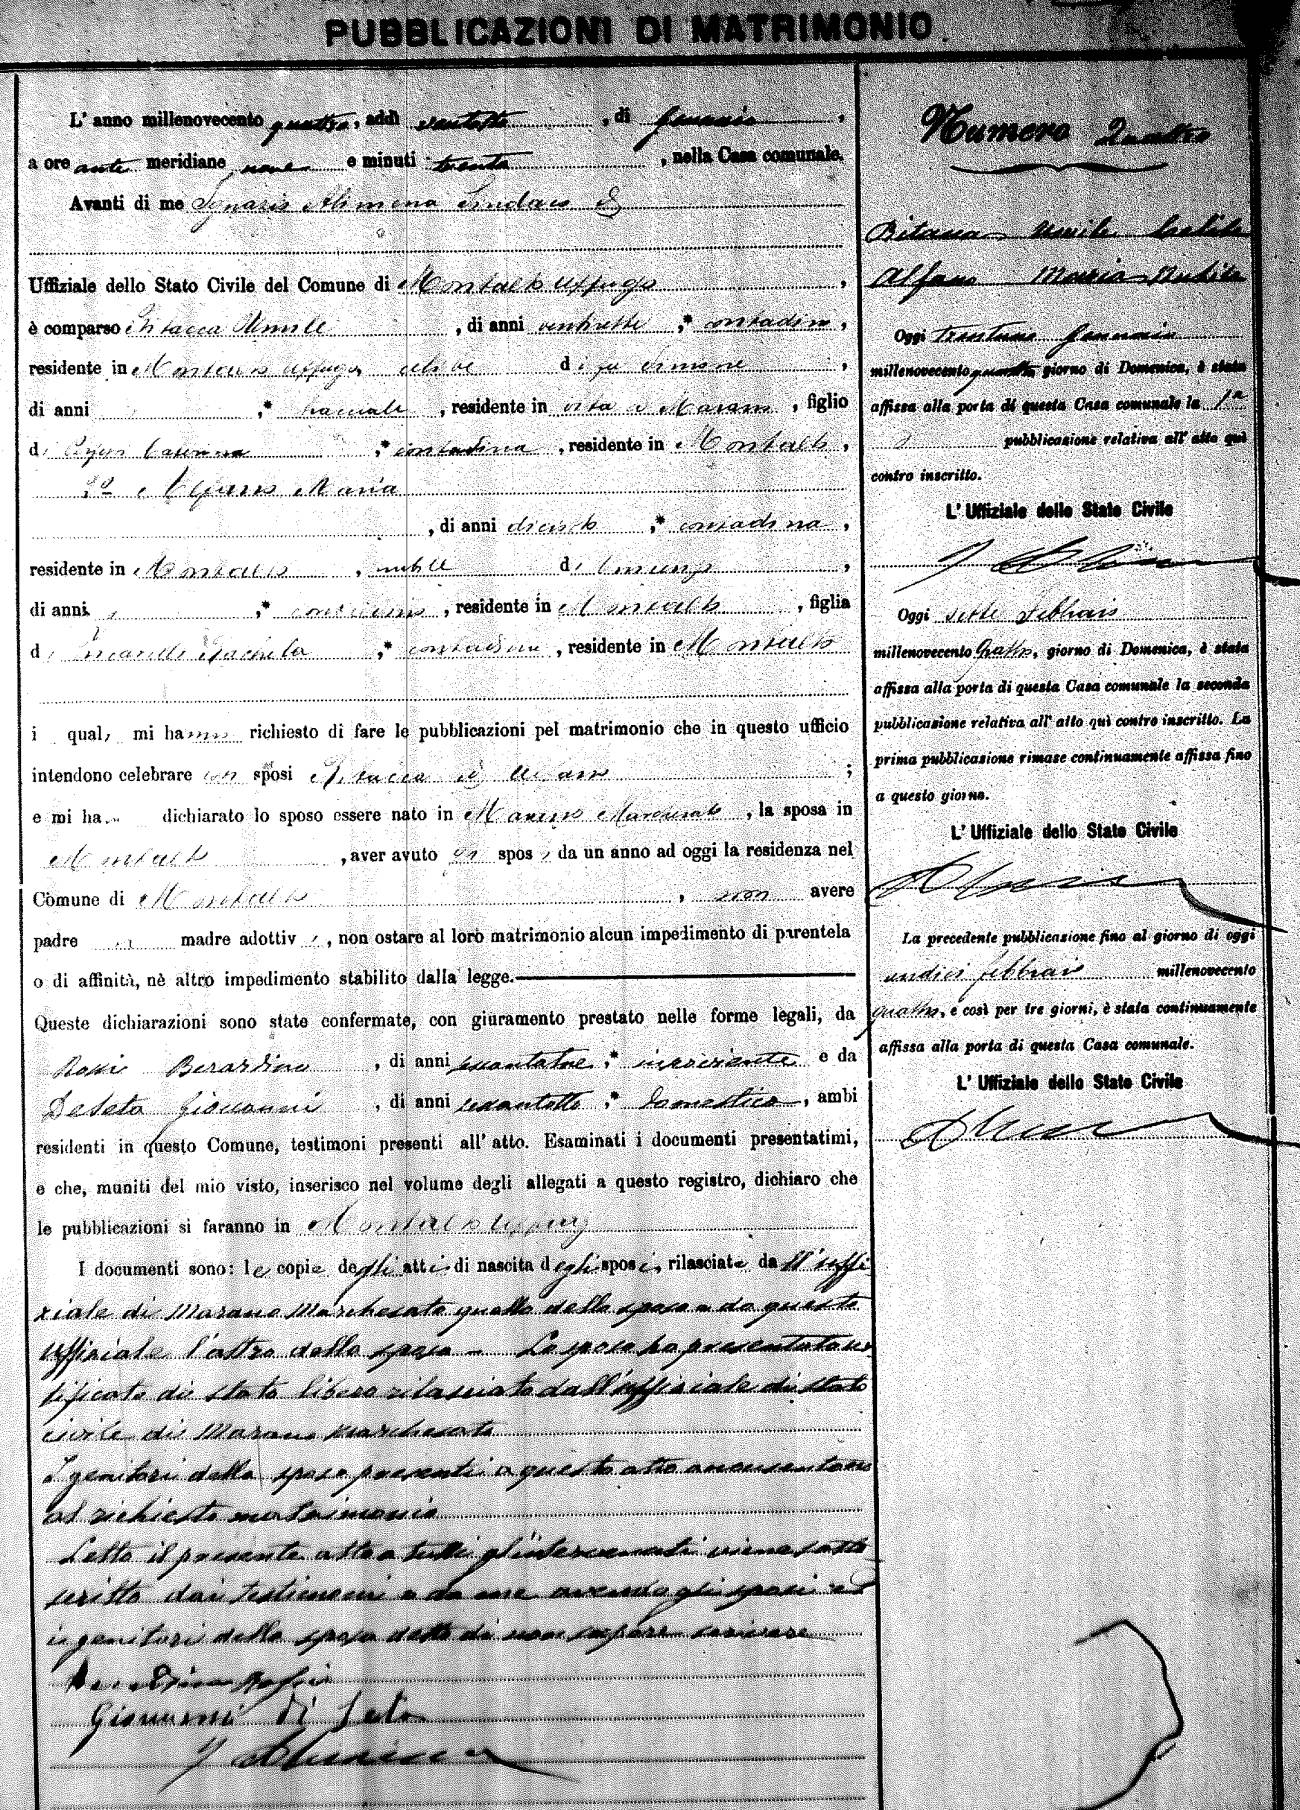 PUBBLICAZIONI DI MATRIMONIO.
L' anno millenovecento quattro, addì ventotto, di Gennaio,
a ore ante meridiane nove e minuti trenta, nella Casa comunale.
Avanti di me Ignazio Alimena Sindaco
Uffiziale dello Stato Civile del Comune di Montalto Uffugo,
è comparso Bitacca Umile, di anni ventisette,* contadino,
residente in Montalto Uffugo celibe di fu Simone,
di anni ,* , residente in vita a Marano, figlio
di Caterina ,* contadina, residente in Montalto,
2º Alfano Maria
, di anni diciotto,* contadina,
residente in Montalto, nubile di Vincenzo,
di anni ,* contadino, residente in Montalto, figlia
di ,* contadina, residente in Montalto
i quali mi hanno richiesto di fare le pubblicazioni pel matrimonio che in questo ufficio
intendono celebrare essi sposi Bitacca ed Alfano;
e mi han dichiarato lo sposo essere nato in Marano Marchesato, la sposa in
Montalto, aver avuto gli sposi da un anno ad oggi la residenza nel
Comune di Montalto, non avere
padre o madre adottivi, non ostare al loro matrimonio alcun impedimento di parentela
o di affinità, nè altro impedimento stabilito dalla legge.
Queste dichiarazioni sono state confermate, con giuramento prestato nelle forme legali, da
Rossi Berardino, di anni ,* inserviente e da
Deseta Giovanni, di anni sessantotto,* domestico, ambi
residenti in questo Comune, testimoni presenti all' atto. Esaminati i documenti presentatimi,
e che, muniti del mio visto, inserisco nel volume degli allegati a questo registro, dichiaro che
le pubblicazioni si faranno in Montalto Uffugo
I documenti sono: le copie degli atti di nascita degli sposi, rilasciate dall'uffi
ziale di Marano Marchesato quello dello sposo e da questo
Uffiziale l'altro della sposa – Lo sposo ha presentato cer
tificato di stato libero rilasciato dall'uffiziale di stato
civile di Marano Marchesato
I genitori della sposa presenti a questo atto acconsentono
al richiesto matrimonio
Letto il presente atto a tutti gl'intervenuti viene sotto
scritto dai testimoni e da me avendo gli sposi ed
i genitori della sposa detto di non sapere scrivere
Berardino Rossi
Giovanni Di Seta
I Alimena
Numero Quattro
Bitacca Umile Celibe
Alfano Maria Nubile
Oggi trentuno Gennaio
millenovecento quattro giorno di Domenica, è stata
affissa alla porta di questa Casa comunale la 1ª
pubblicazione relativa all' atto quì
contro inscritto.
L' Uffiziale dello Stato Civile
I Alimena
Oggi sette Febbraio
millenovecento quattro, giorno di Domenica, è stata
affissa alla porta di questa Casa comunale la seconda
pubblicazione relativa all' atto quì contro inscritto. La
prima pubblicazione rimase continuamente affissa fino
a questo giorno.
L' Uffiziale dello Stato Civile
Alimena
La precedente pubblicazione fino al giorno di oggi
undici febbraio millenovecento
quattro, e così per tre giorni, è stata continuamente
affissa alla porta di questa Casa comunale.
L' Uffiziale dello Stato Civile
Alimena